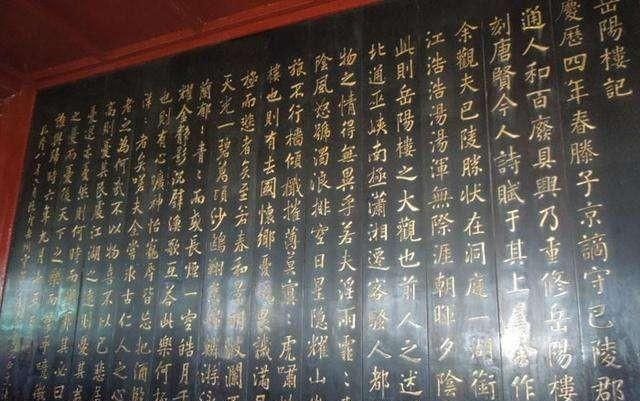 岳陽樓記
慶歷四年春滕子京謫守巴陵郡
通人和百廢具興乃重修岳陽樓
刻唐賢今人詩賦于其上作
余觀夫巴陵勝狀在洞庭一湖銜
江浩浩湯湯渾無際涯朝暉夕陰
此則岳陽樓之大觀也前人之述
北通巫峽南極瀟湘遷客騷人都
物之情得無異乎若夫淫雨霏:
陰風怒號濁浪排空日星隱耀山
旅不行檣傾檝摧薄莫冥:虎嘯
樓也則有去國懷鄉憂讒畏譏滿
極而悲者矣至若春和景明波瀾不
天光一碧萬頃沙鷗翔集錦鱗游泳
蘭郁:青:而或長煙一空皓月千
耀金靜影沉璧漁歌互答此樂何極
也則有心曠神怡寵辱皆忘把酒臨
洋:者矣嗟夫余嘗求古仁人之心
者之為何哉不以物喜不以己悲
高則憂其民處江湖之遠則憂其
憂退亦憂然則何時而樂耶其必曰
之憂而憂後天下之樂而樂乎噫微
與歸時六年九月十五日